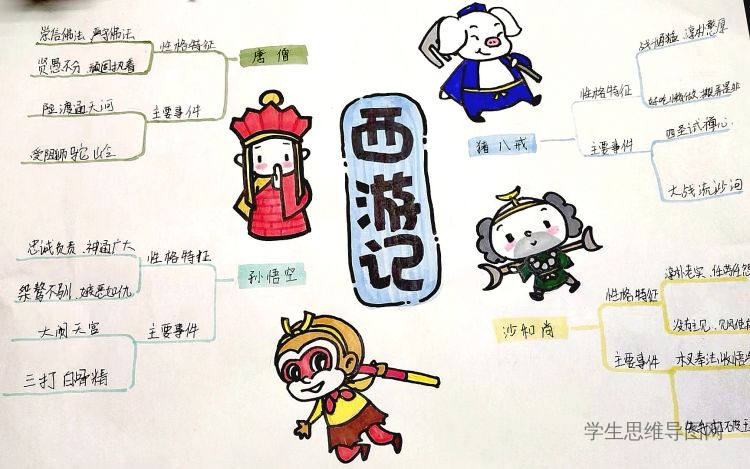 西游记
唐僧
性格特征
崇信佛法 严守佛法
贤愚不分 顽固执着
主要事件
陷渡通天河
受阻狮驼岭
孙悟空
性格特征
忠诚负责、神通广大
桀骜不驯、嫉恶如仇
主要事件
大闹天宫
三打白骨精
猪八戒
性格特征
淳朴憨厚
好吃懒做
主要事件
四圣试禅心
大战流沙河
沙和尚
性格特征
淳朴老实、任劳任怨
没有主见、见风使
主要事件
木叉奉法收悟
学生思维导图网